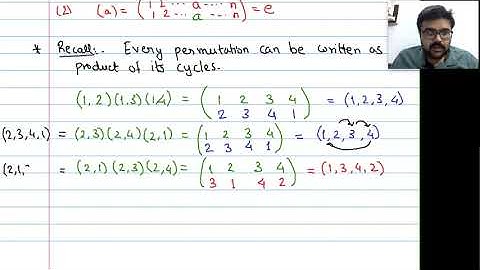 (2) (a) = ( 1 2 ... a ... n
1 2 ... a ... n ) = e
* Recall:. Every permutation can be written as
product of its cycles.
(1, 2) (1, 3) (1,4) = ( 1 2 3 4
2 3 4 1 ) = (1, 2, 3, 4)
(2, 3, 4, 1) = (2, 3) (2, 4) (2, 1) = ( 1 2 3 4
2 3 4 1 ) = (1, 2, 3, 4)
(2, 1, = (2, 1) (2, 3) (2, 4) = ( 1 2 3 4
3 1 4 2 ) = (1, 3, 4, 2)